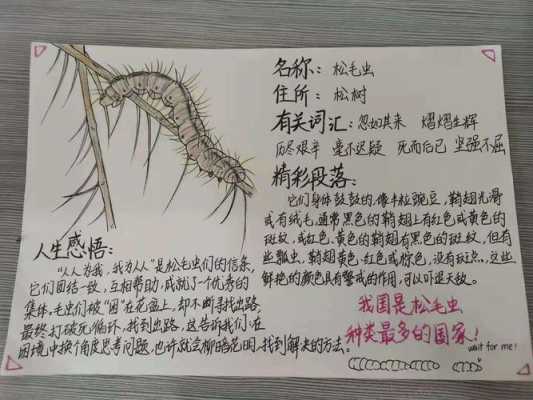 名称：松毛虫
住所：松树
有关词汇：忽如其来 熠熠生辉
历尽艰辛 毫不迟疑 死而后已 坚强不屈
精彩段落：
它们身体鼓鼓的，像半粒豌豆，鞘翅光滑
或有绒毛，通常黑色的鞘翅上有红色或黄色的
斑纹，或红色、黄色的鞘翅有黑色的斑纹，但有
些瓢虫，鞘翅黄色、红色或棕色，没有斑点，这些
鲜艳的颜色具有警戒的作用，可以吓退天敌。
人生感悟：
“人人为我，我为人人”是松毛虫们的信条，
它们团结一致，互相帮助，成就了个优秀的
集体。毛虫们被“困”在花盆上，却不断寻找出路，
最终打破死循环，找到出路，这告诉我们，在
困境中换个角度思考问题，也许就会柳暗花明，找到解决的方法。
我国是松毛虫
种类最多的国家！
wait for me！